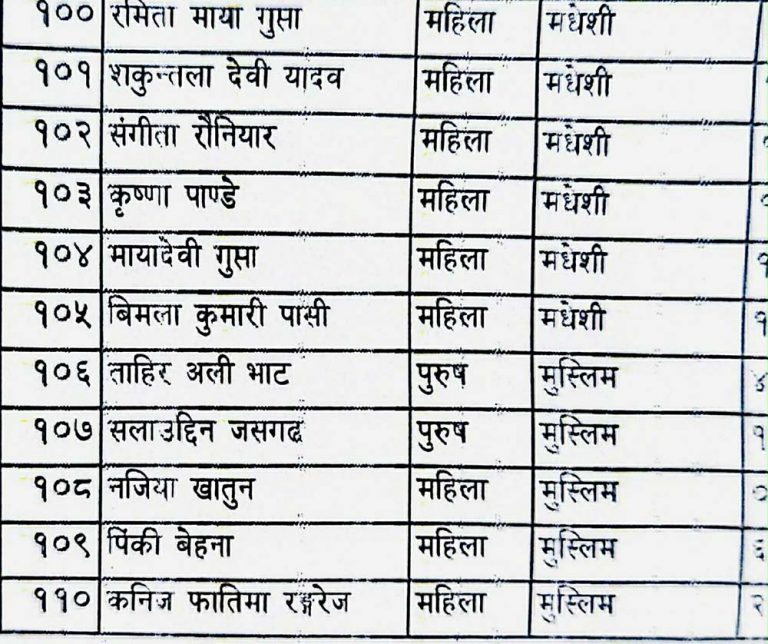 १०० रमिता माया गुप्ता महिला मधेशी
१०१ शकुन्तला देवी यादव महिला मधेशी १
१०२ संगीता रौनियार महिला मधेशी
१०३ कृष्णा पाण्डे महिला मधेशी
१०४ मायादेवी गुप्ता महिला मधेशी १
१०५ बिमला कुमारी पासी महिला मधेशी १
१०६ ताहिर अली भाट पुरुष मुस्लिम ४
१०७ सलाउद्दिन जसगढ पुरुष मुस्लिम १
१०८ नजिया खातुन महिला मुस्लिम ०
१०९ पिंकी बेहना महिला मुस्लिम ६
११० कनिज फातिमा रङ्गरेज महिला मुस्लिम २